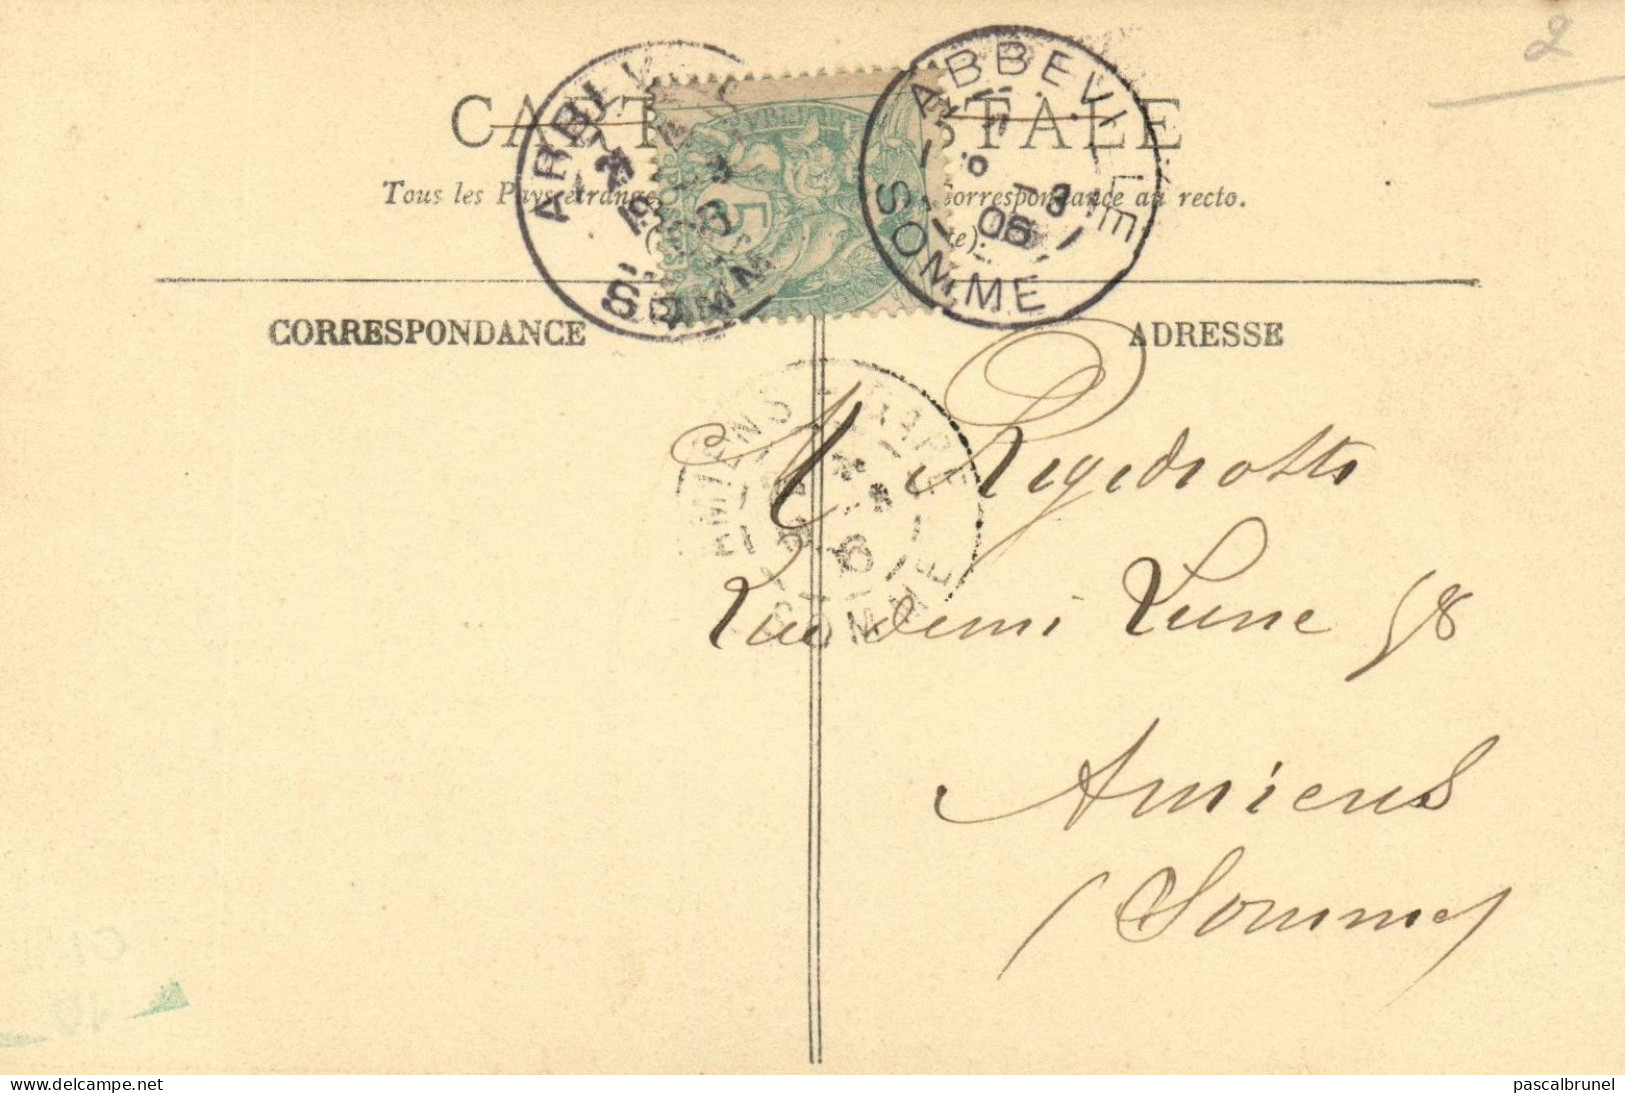 2
CARTE POSTALE
Tous les Pays étrangers correspondance au recto.
te).
ABBEVILLE
SOMME
8
06
ABBEVILLE
SOMME
5
CORRESPONDANCE
ADRESSE
AMIENS GARE
SOMME
M Rigidiotti
Rue demi Lune 58
Amiens
(Somme)
www.delcampe.net
pascalbrunel